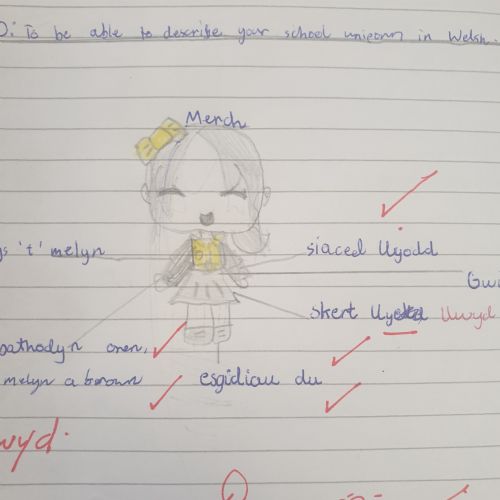 O: To be able to describe your school unieorm in Welsh.
Merch
ys 't' melyn
siaced llyodd
Gw
skert Llwyd
pathodyn oren,
melyn a brown
esgidiau du
wyd.